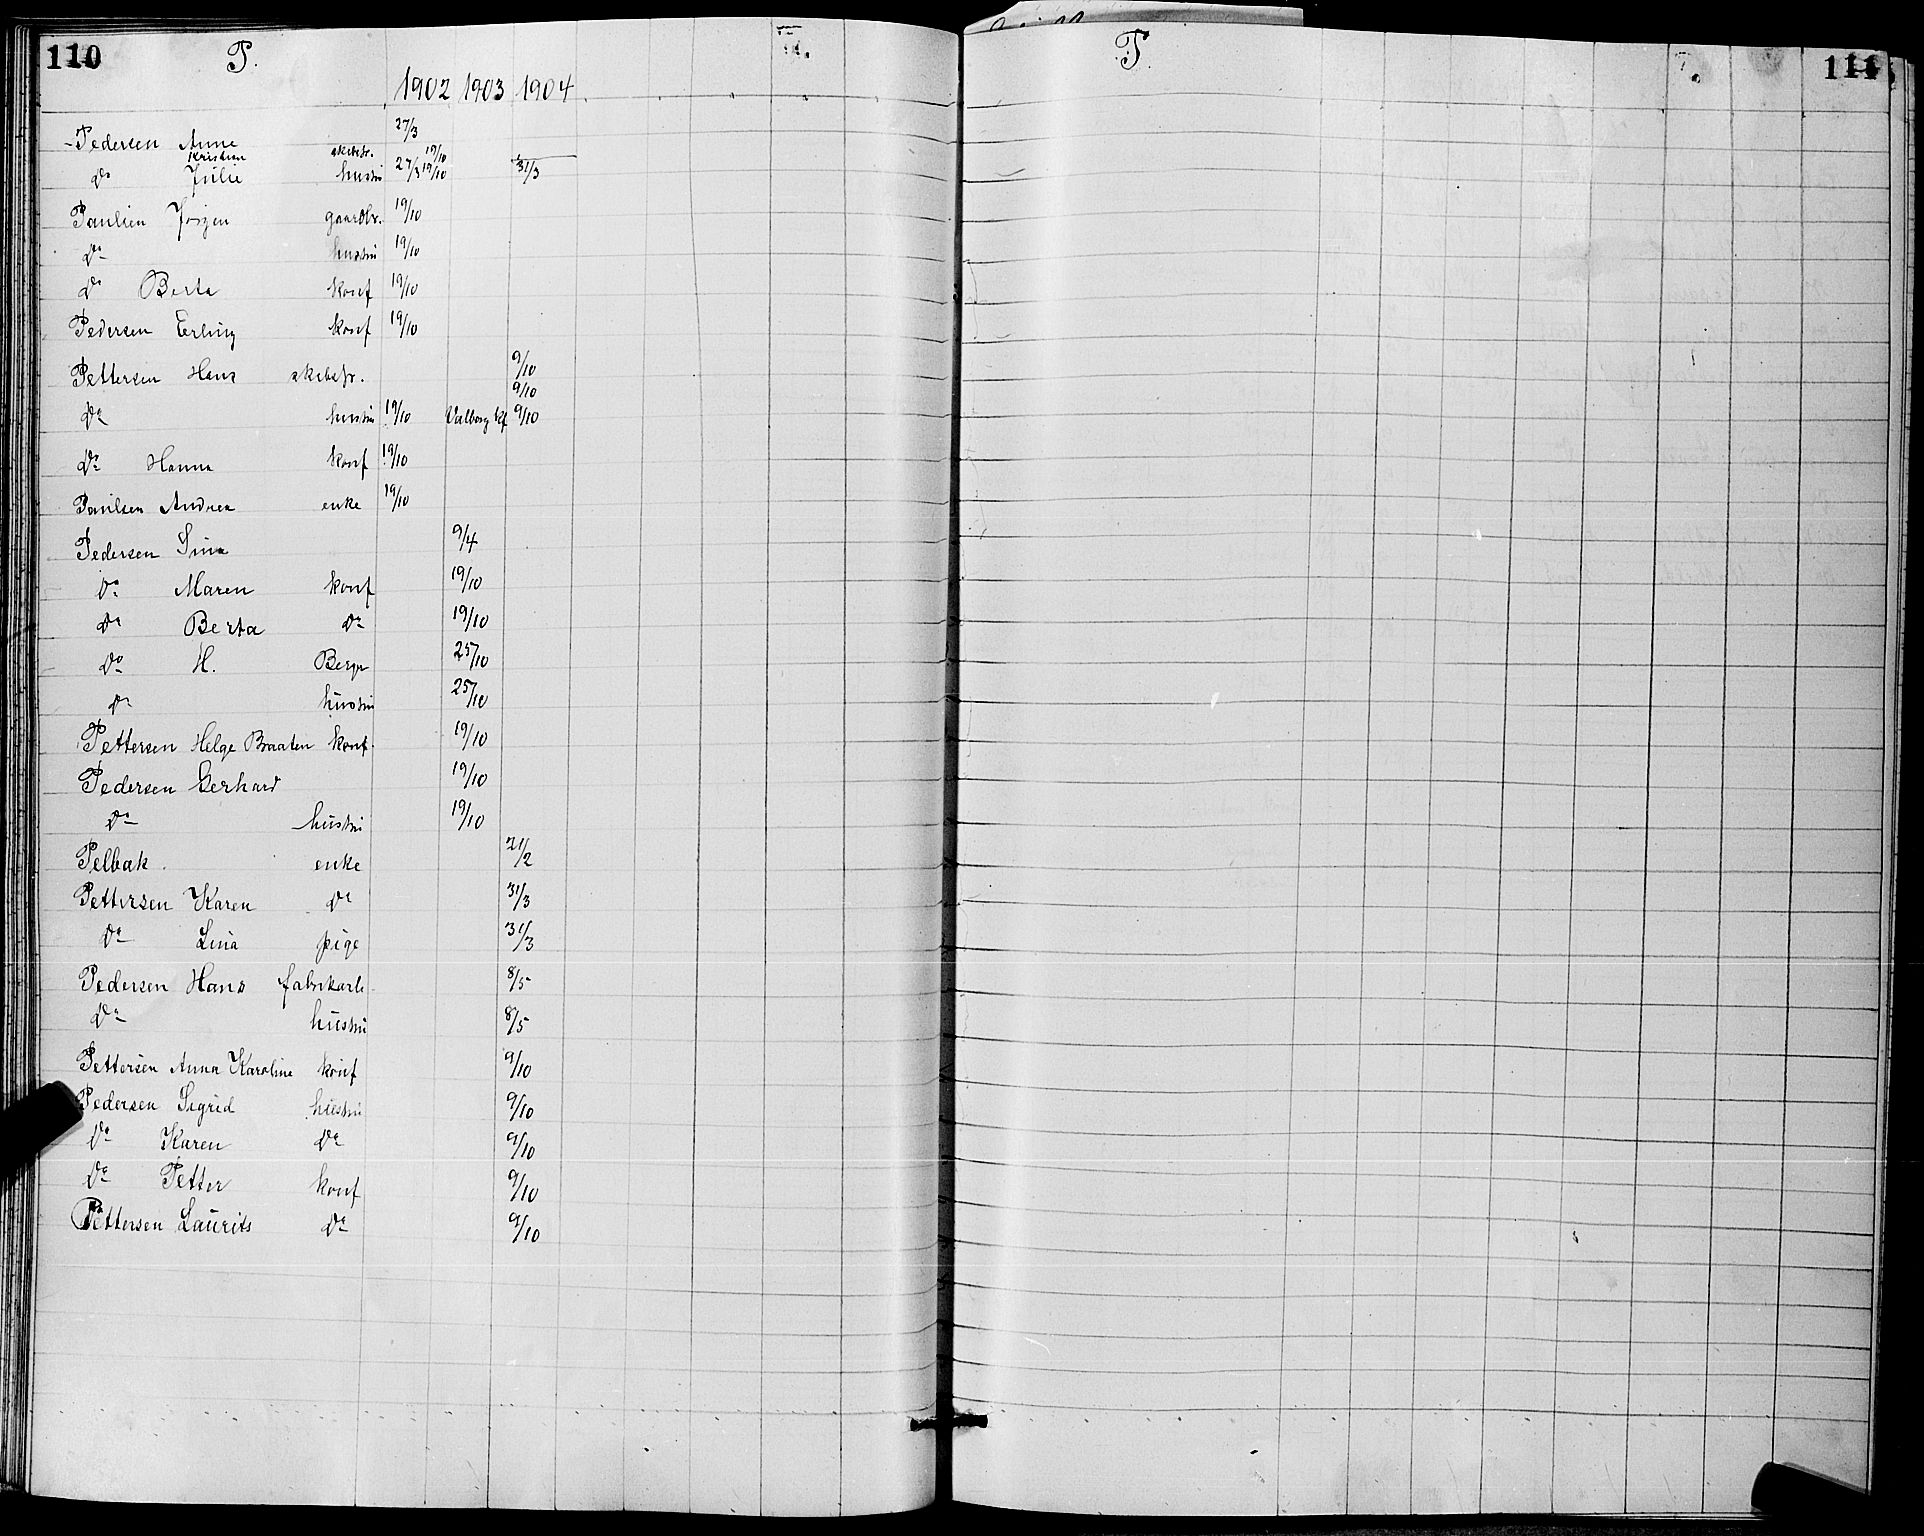 110 P.
1902 1903 1904
Pedersen Anne 27/3
Kristian skibstr. 19/10
Do Julie hustru 27/3 19/10 31/3
Paulsen Jørgen gaardbr. 19/10
Do hustru 19/10
Do Berta konf 19/10
Pedersen Erling konf 19/10
Pettersen Hans skibstr. 9/10
9/10
Do hustru 19/10 Valborg kf 9/10
Do Hanna konf 19/10
Paulsen Andrea enke 19/10
Pedersen Sina 9/4
Do Maren konf 19/10
Do Berta Do 19/10
Do H. 25/10
Do hustru 25/10
Pettersen Helge Braaten konf. 19/10
Pedersen Gerhard 19/10
Do hustru 19/10
Pelbak. enke 21/2
Pettersen Karen Do 31/3
Do Lina pige 31/3
Pedersen Hans fabrikarb. 8/5
Do hustru 8/5
Pettersen Anna Karoline konf 9/10
Pedersen Sigrid hustru 9/10
Do Karen Do 9/10
Do Petter konf 9/10
Pettersen Laurits Do 9/10
P. 111